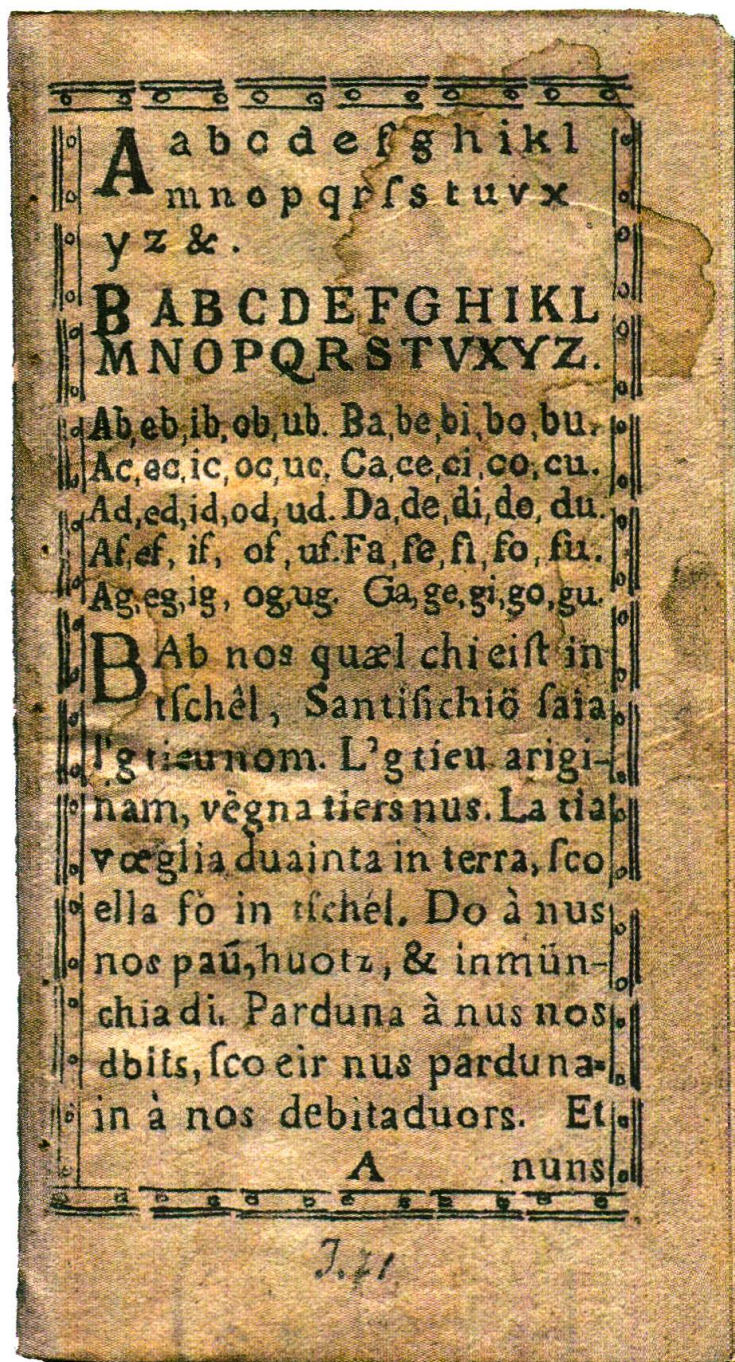 A a b c d e f g h i k l
m n o p q r ſ s t u v x
y z & .
B A B C D E F G H I K L
M N O P Q R S T V X Y Z.
Ab, eb, ib, ob, ub. Ba, be, bi, bo, bu.
Ac, ec, ic, oc, uc, Ca, ce, ci, co, cu.
Ad, ed, id, od, ud. Da, de, di, do, du.
Af, ef, if, of, uf. Fa, fe, fi, fo, fu.
Ag, eg, ig, og, ug. Ga, ge, gi, go, gu.
BAb nos quæl chi eiſt in
tſchêl, Santifichiö ſaia
l'g tieu nom. L'g tieu arigi-
nam, vêgna tiers nus. La tia
vœglia duainta in terra, ſco
ella fò in tſchél. Do à nus
nos paũ, huotz, & inmün-
chia di. Parduna à nus nos
dbits, ſco eir nus parduna-
in à nos debitaduors. Et
A nuns
J. 71